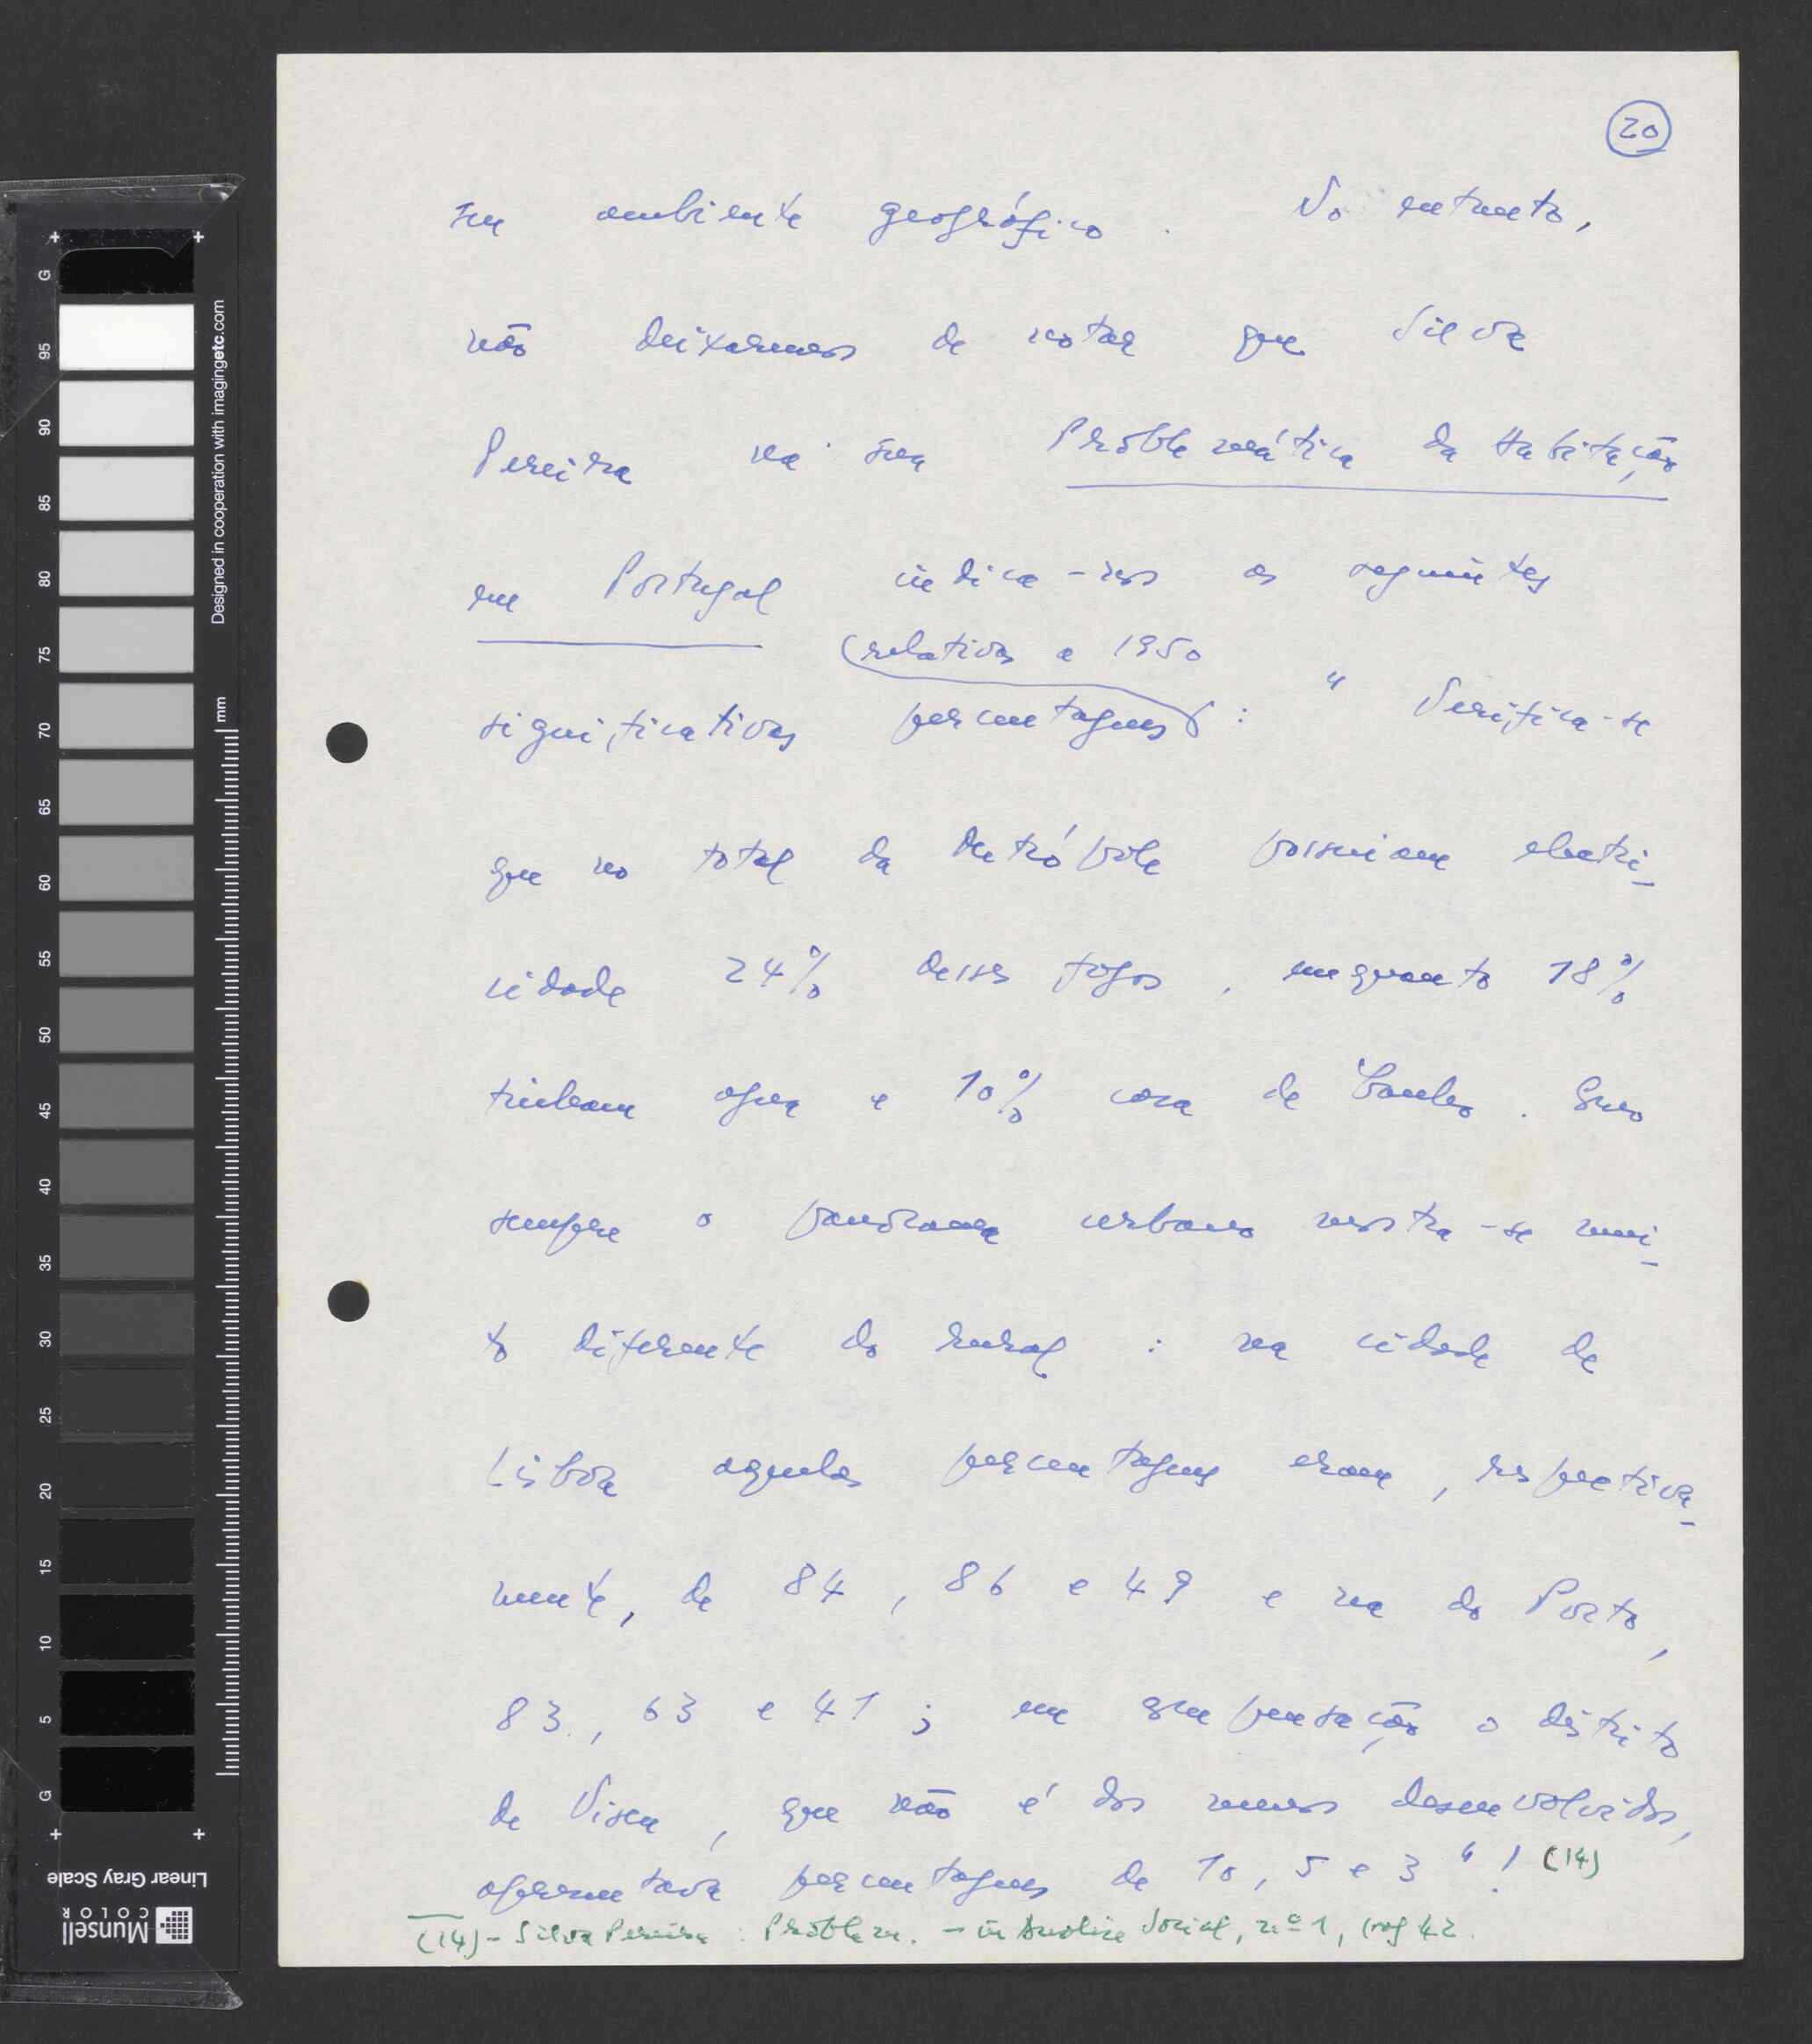 20
seu ambiente geográfico. No entanto,
não deixaremos de notar que Silva
Pereira na sua Problemática da Habitação
em Portugal indica-nos as seguintes
(relativas a 1950
significativas percentagens : " Verifica-se
que no total da Metrópole possuiam electri-
cidade 24% desses fogos, enquanto 18%
tinham agua e 10% casa de banho. Como
sempre o panorama urbano mostra-se mui-
to diferente do rural : na cidade de
Lisboa aquelas percentagens eram, respectiva-
mente, de 84, 86 e 49 e na do Porto,
83, 63 e 41 ; em compensação o distrito
de Viseu, que não é dos menos desenvolvidos,
apresentava percentagens de 10, 5 e 3 " ! (14)
(14) - Silva Pereira : Problem. - in Analise Social, nº 1, pag 42.
G
95
90
85
80
75
70
65
60
55
50
45
40
35
30
25
20
15
10
5
G
mm
Designed in cooperation with imagingetc.com
Linear Gray Scale
Munsell
COLOR